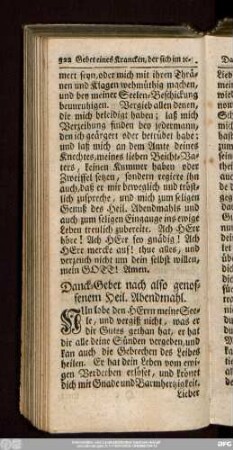 922 Gebet eines Krancken, der sich im ꝛc.
mert seyn, oder mich mit ihren Thrä-
nen und Klagen wehmüthig machen,
und bey meiner Seelen-Beschickung
beunruhigen. Vergieb allen denen,
die mich beleidigt haben; laß mich
Verzeihung finden bey jedermann,
den ich geärgert oder betrübet habe:
und laß mich an dem Amte deines
Knechtes, meines lieben Beicht-Va-
ters, keinen Kummer haben oder
Zweiffel setzen, sondern regiere ihn
auch, daß er mir beweglich und tröst-
lich zuspreche, und mich zum seligen
Genuß des Heil. Abendmahls und
auch zum seligen Eingange ins ewige
Leben treulich zubereite. Ach HErr
höre! Ach HErr sey gnädig! Ach
HErr mercke auf! thue alles, und
verzeuch nicht um dein selbst willen,
mein GOTT! Amen.
Danck-Gebet nach also genos-
senem Heil. Abendmahl.
NUn lobe den HErrn meine See-
le, und vergiß nicht, was er
dir Gutes gethan hat, er hat
dir alle deine Sünden vergeben, und
kan auch die Gebrechen des Leibes
heilen. Er hat dein Leben vom ewi-
gen Verderben erlöset, und krönet
dich mit Gnade und Barmhertzigkeit.
Lieber